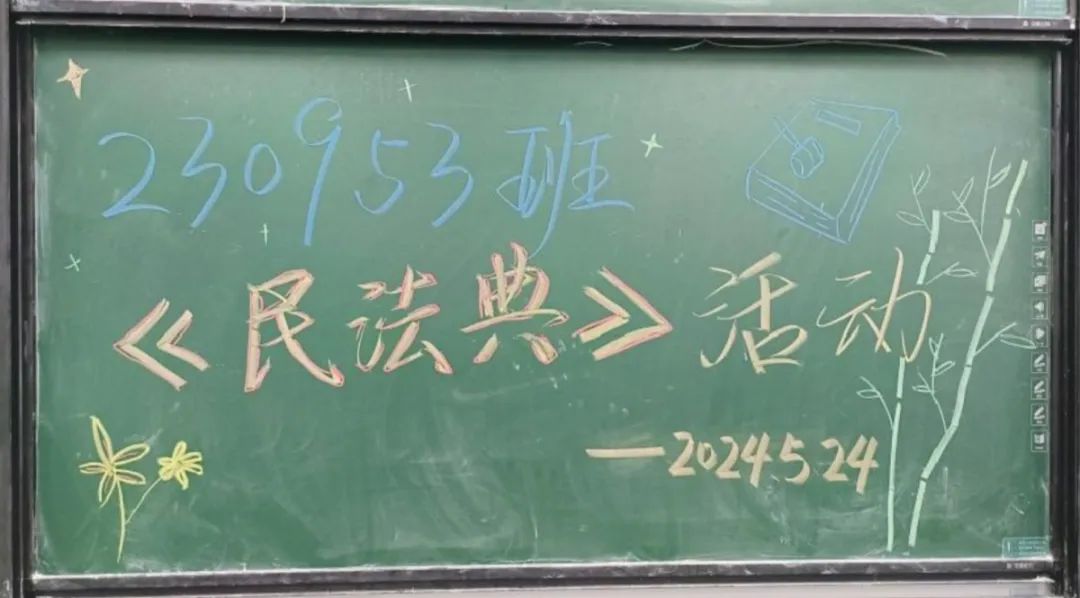 230953班
《民法典》活动
—2024.5.24